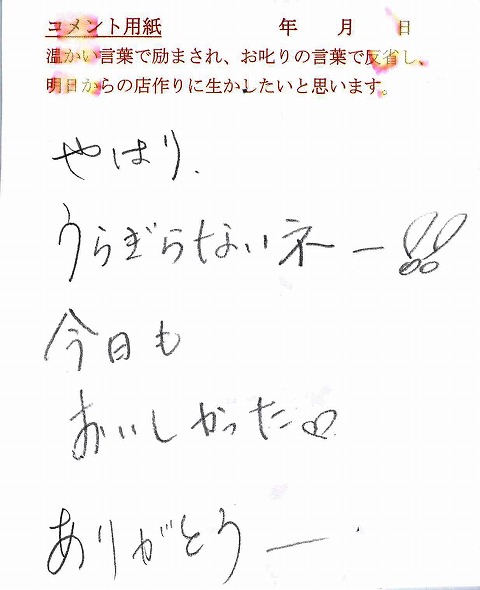 コメント用紙　　　　年　月　日
温かい言葉で励まされ、お叱りの言葉で反省し、
明日からの店作りに生かしたいと思います。
やはり、
うらぎらないネー!!
今日も
おいしかった♡
ありがとうー.